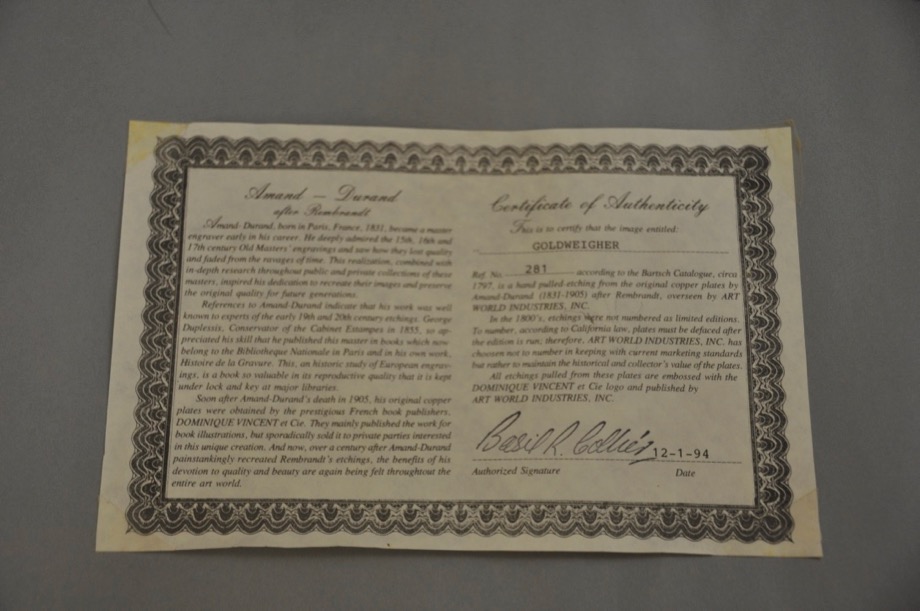 Amand — Durand
after Rembrandt
Amand-Durand, born in Paris, France, 1831, became a master
engraver early in his career. He deeply admired the 15th, 16th and
17th century Old Masters' engravings and saw how they lost quality
and faded from the ravages of time. This realization, combined with
in-depth research throughout public and private collections of these
masters, inspired his dedication to recreate their images and preserve
the original quality for future generations.
References to Amand-Durand indicate that his work was well
known to experts of the early 19th and 20th century etchings. George
Duplessis, Conservator of the Cabinet Estampes in 1855, so ap-
preciated his skill that he published this master in books which now
belong to the Bibliotheque Nationale in Paris and in his own work,
Histoire de la Gravure. This, an historic study of European engrav-
ings, is a book so valuable in its reproductive quality that it is kept
under lock and key at major libraries.
Soon after Amand-Durand's death in 1905, his original copper
plates were obtained by the prestigious French book publishers,
DOMINIQUE VINCENT et Cie. They mainly published the work for
book illustrations, but sporadically sold it to private parties interested
in this unique creation. And now, over a century after Amand-Durand
painstankingly recreated Rembrandt's etchings, the benefits of his
devotion to quality and beauty are again being felt throughtout the
entire art world.
Certificate of Authenticity
This is to certify that the image entitled:
GOLDWEIGHER
Ref. No. 281 according to the Bartsch Catalogue, circa
1797, is a hand pulled etching from the original copper plates by
Amand-Durand (1831-1905) after Rembrandt, overseen by ART
WORLD INDUSTRIES, INC.
In the 1800's, etchings were not numbered as limited editions.
To number, according to California law, plates must be defaced after
the edition is run; therefore, ART WORLD INDUSTRIES, INC. has
choosen not to number in keeping with current marketing standards
but rather to maintain the historical and collector's value of the plates.
All etchings pulled from these plates are embossed with the
DOMINIQUE VINCENT et Cie logo and published by
ART WORLD INDUSTRIES, INC.
Basil R. Collier 12-1-94
Authorized Signature Date